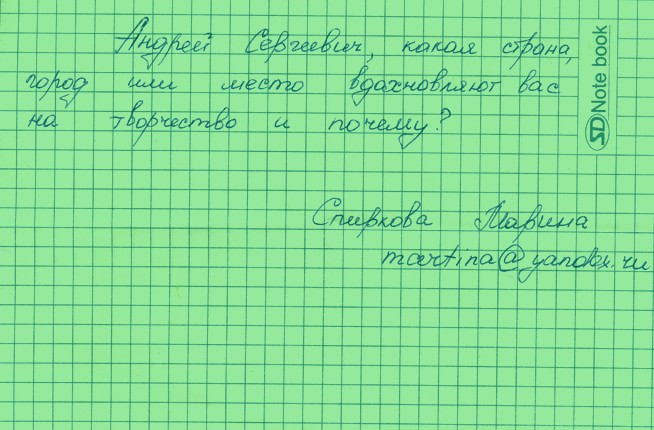 Андрей Сергеевич, какая страна,
город или место вдохновляют вас
на творчество и почему?
Спиркова Марина
martina@yandex.ru
SD Note book